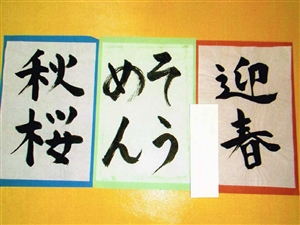 迎春
そう
めん
秋桜